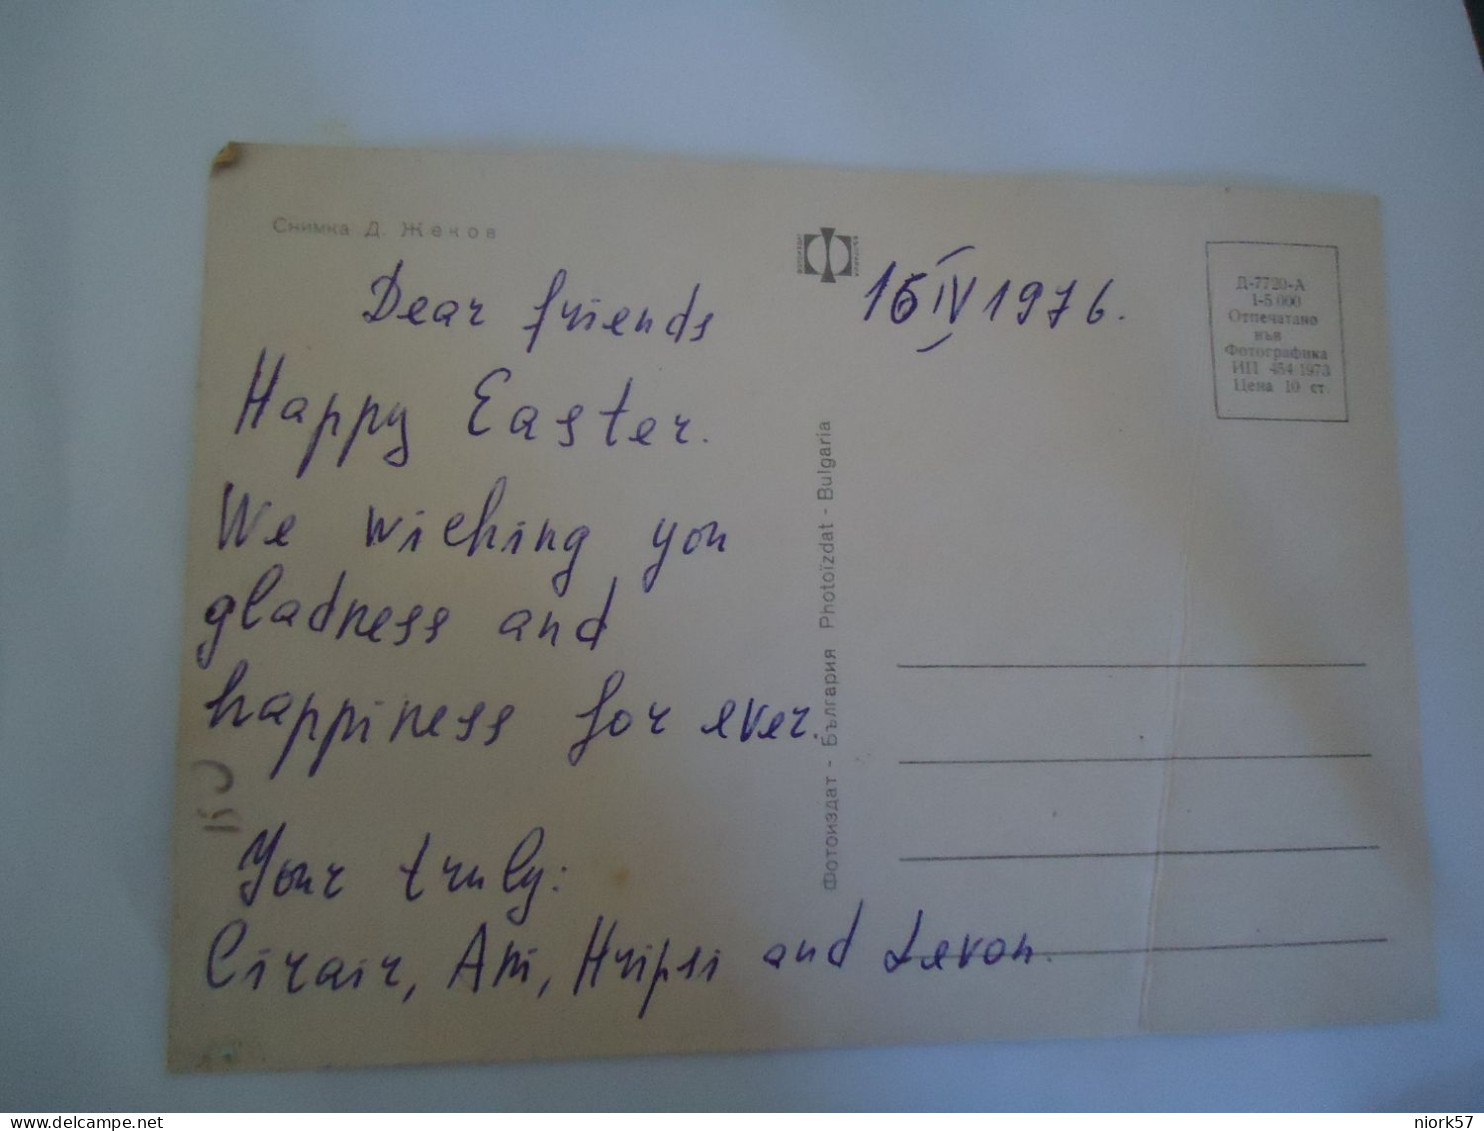 Снимка Д. Жеков
Dear friends
Happy Easter.
We wiching you
gladness and
happiness for ever.
Your truly:
Cirair, Ani, Hripsi and Levon.
16 IV 1976.
Фотоиздат - България Photoïzdat - Bulgaria
Д-7720-А
1-5.000
Отпечатано
във
Фотографика
ИП 454/1973
Цена 10 ст.
niork57